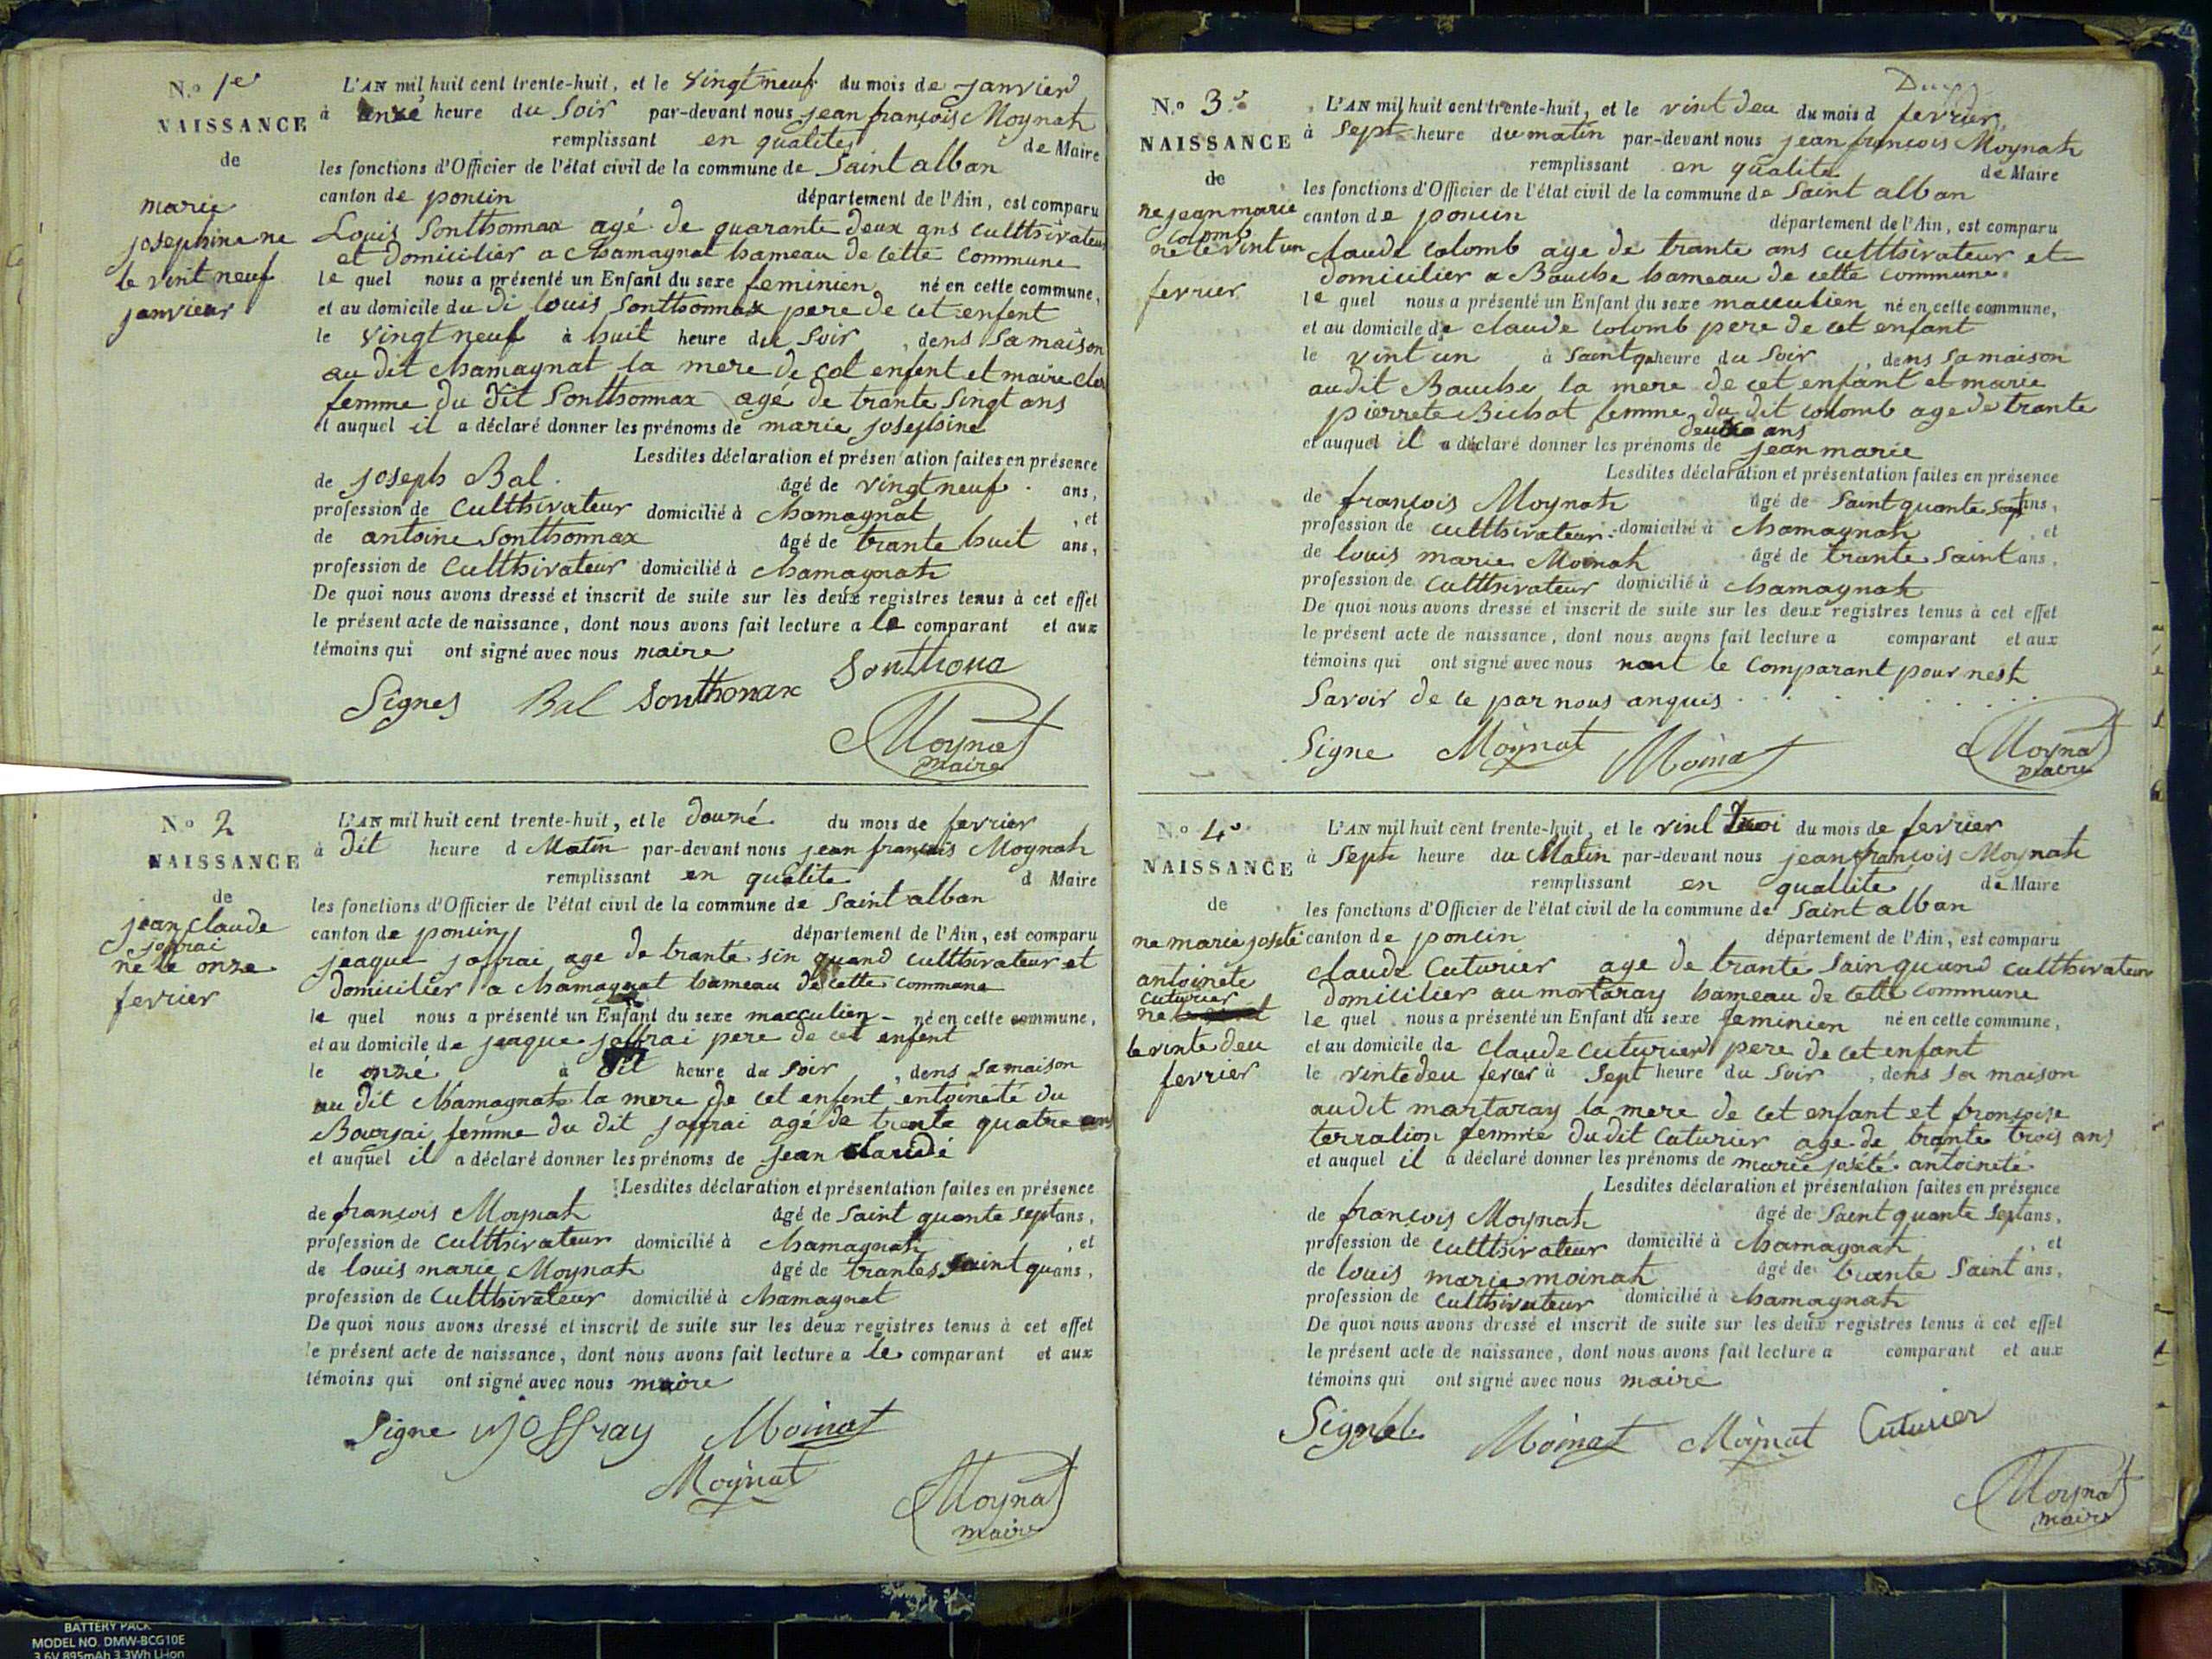 N.º 1er
NAISSANCE
de
marie
josephine ne
le vint neuf
janvier
L'AN mil huit cent trente-huit, et le vingt neuf du mois de janvier
à onzé heure du soir par-devant nous jean françois Moynat
remplissant en qualites de Maire
les fonctions d'Officier de l'état civil de la commune de Saint alban
canton de poncin département de l'Ain, est comparu
Louis Sonthonnax agé de quarante deux ans culthivateur
et domicilier a Chamagnat hameau de cette commune
le quel nous a présenté un Enfant du sexe feminien né en cette commune,
et au domicile du di louis Sonthonnax pere de cet enfent
le vingt neuf à huit heure du soir , dens sa maison
au dit Chamagnat la mere de cet enfent et maire
femme du dit Sonthonnax agé de trante singt ans
et auquel il a déclaré donner les prénoms de marie josephine
Lesdites déclaration et présentation faites en présence
de joseph Bal âgé de vingt neuf ans,
profession de Culthivateur domicilié à Chamagnat , et
de antoine Sonthonnax âgé de trante huit ans,
profession de Culthivateur domicilié à Chamagnat
De quoi nous avons dressé et inscrit de suite sur les deux registres tenus à cet effet
le présent acte de naissance, dont nous avons fait lecture a le comparant et aux
témoins qui ont signé avec nous maire
Signes Bal Sonthonax Sonthona
Moynat
maire
Nº 2
NAISSANCE
de
jean claude
joffrai
ne le onze
fevrier
L'AN mil huit cent trente-huit, et le douzé du mois de fevrier
à dit heure d Matin par-devant nous jean françois Moynat
remplissant en qualite d Maire
les fonctions d'Officier de l'état civil de la commune de Saint alban
canton de poncin département de l'Ain, est comparu
jeaque joffrai age de trante sin quand culthivateur et
domicilier a chamagnat hameau de cette commune
le quel nous a présenté un Enfant du sexe macculien né en cette commune,
et au domicile de jeaque joffrai pere de cet enfent
le onzé à dit heure du soir , dens sa maison
au dit Chamagnat la mere de cet enfent entoineté du
Boursai femme du dit joffrai agé de trente quatre ans
et auquel il a déclaré donner les prénoms de jean claudé
Lesdites déclaration et présentation faites en présence
de françois Moynat âgé de saint quante sept ans,
profession de Culthivateur domicilié à Chamagnat , et
de louis marie Moynat âgé de trantes saint quans,
profession de Culthivateur domicilié à Chamagnat
De quoi nous avons dressé et inscrit de suite sur les deux registres tenus à cet effet
le présent acte de naissance, dont nous avons fait lecture a le comparant et aux
témoins qui ont signé avec nous maire
Signe Joffray Moinat
Moynat
Moynat
maire
N.º 3e
NAISSANCE
de
ne jean marie
colomb
ne le vint un
fevrier
L'AN mil huit cent trente-huit, et le vint deu du mois d fevrier
à Sept heure du matin par-devant nous jean françois Moynat
remplissant en qualite de Maire
les fonctions d'Officier de l'état civil de la commune de Saint alban
canton de poncin département de l'Ain, est comparu
claude colomb age de trante ans culthivateur et
domicilier a Bauche hameau de cette commune
le quel nous a présenté un Enfant du sexe macculien né en cette commune,
et au domicile de claude colomb pere de cet enfant
le vint un à saintq heure du soir , dens sa maison
audit Bauche la mere de cet enfant et marie
pierrete Bichat femme du dit colomb age de trante
deux ans
et auquel il a déclaré donner les prénoms de jean marie
Lesdites déclaration et présentation faites en présence
de françois Moynat âgé de Saint quante sept ans,
profession de culthivateur domicilié à Chamagnat , et
de louis marie Moinat âgé de trante saint ans,
profession de Culthivateur domicilié à Chamagnat
De quoi nous avons dressé et inscrit de suite sur les deux registres tenus à cet effet
le présent acte de naissance, dont nous avons fait lecture a comparant et aux
témoins qui ont signé avec nous nont le comparant pour nest
savoir de ce par nous anquis
Signe Moynat Moinat
Moynat
maire
N.º 4e
NAISSANCE
de
ne marie josete
antoinete
cuturier
ne
le vinte deu
fevrier
L'AN mil huit cent trente-huit, et le vint troi du mois de fevrier
à Sept heure du Matin par-devant nous jean françois Moynat
remplissant en quallite de Maire
les fonctions d'Officier de l'état civil de la commune de Saint alban
canton de poncin département de l'Ain, est comparu
claude Cuturier age de trante sain quand culthivateur
domicilier au mortaray hameau de cette commune
le quel nous a présenté un Enfant du sexe feminien né en cette commune,
et au domicile de claude cuturier pere de cet enfant
le vinte deu fevrier à Sept heure du Soir , dens sa maison
audit martaray la mere de cet enfant et françoise
terralion femme dudit Cuturier age de trante trois ans
et auquel il a déclaré donner les prénoms de marie joséte antoineté
Lesdites déclaration et présentation faites en présence
de françois Moynat âgé de Saint quante Sept ans,
profession de Culthivateur domicilié à Chamagnat , et
de louis marie moinat âgé de trante Saint ans,
profession de Culthivateur domicilié à Chamagnat
De quoi nous avons dressé et inscrit de suite sur les deux registres tenus à cet effet
le présent acte de naissance, dont nous avons fait lecture a comparant et aux
témoins qui ont signé avec nous maire
Signe Moinat Moynat Cuturier
Moynat
maire
BATTERY PACK
MODEL NO. DMW-BCG10E
3.6V 895mAh 3.3Wh Li-ion